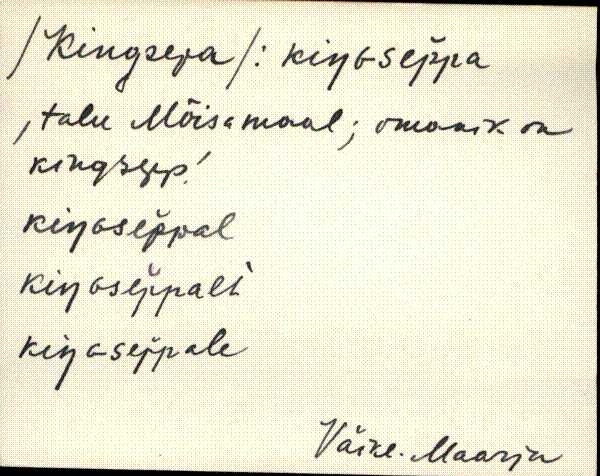 /Kingsepa/: kiŋɢsep̆pa
‚talu Mõisamaal; omanik on
kingsepp.’
kiŋɢsep̆pal
kiŋɢsep̆palt
kiŋɢsep̆pale
Väike-Maarja